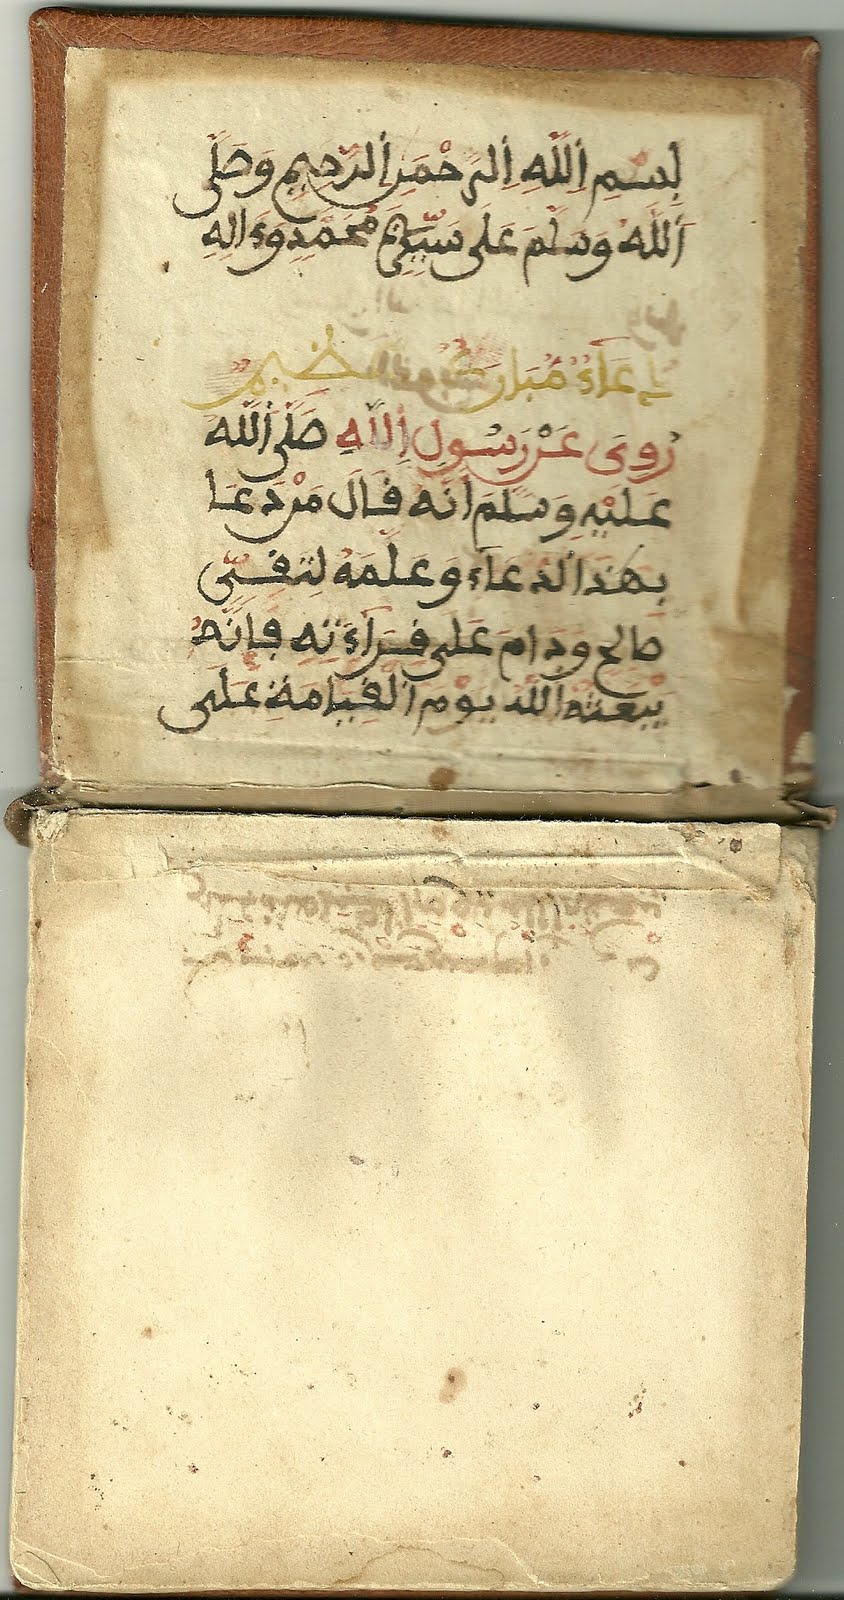 بِسْمِ اِللَّهِ اِلرَّحْمَنِ اِلرَّحِيمِ وَصَلَّى
اَللَّهُ وَسَلَّمَ عَلَى سَيِّدِنَا مُحَمَّدٍ وَءَالِهِ
دُعَآءٌ مُبَارَكٌ عظيم
رُوِىَ عَنْ رَسُولِ اِللَّهِ صَلَّى اَللَّهُ
عَلَيْهِ وَسَلَّمَ أَنَّهُ قَالَ مَنْ دَعَا
بِهَذَا الدُّعَآءِ وَعَلَّمَهُ لِتَقِىٍّ
صَالِحٍ وَدَامَ عَلَى قِرَآءَتِهِ فَإِنَّهُ
يَبْعَثُهُ اللَّهُ يَوْمَ الْقِيَامَةِ عَلَى